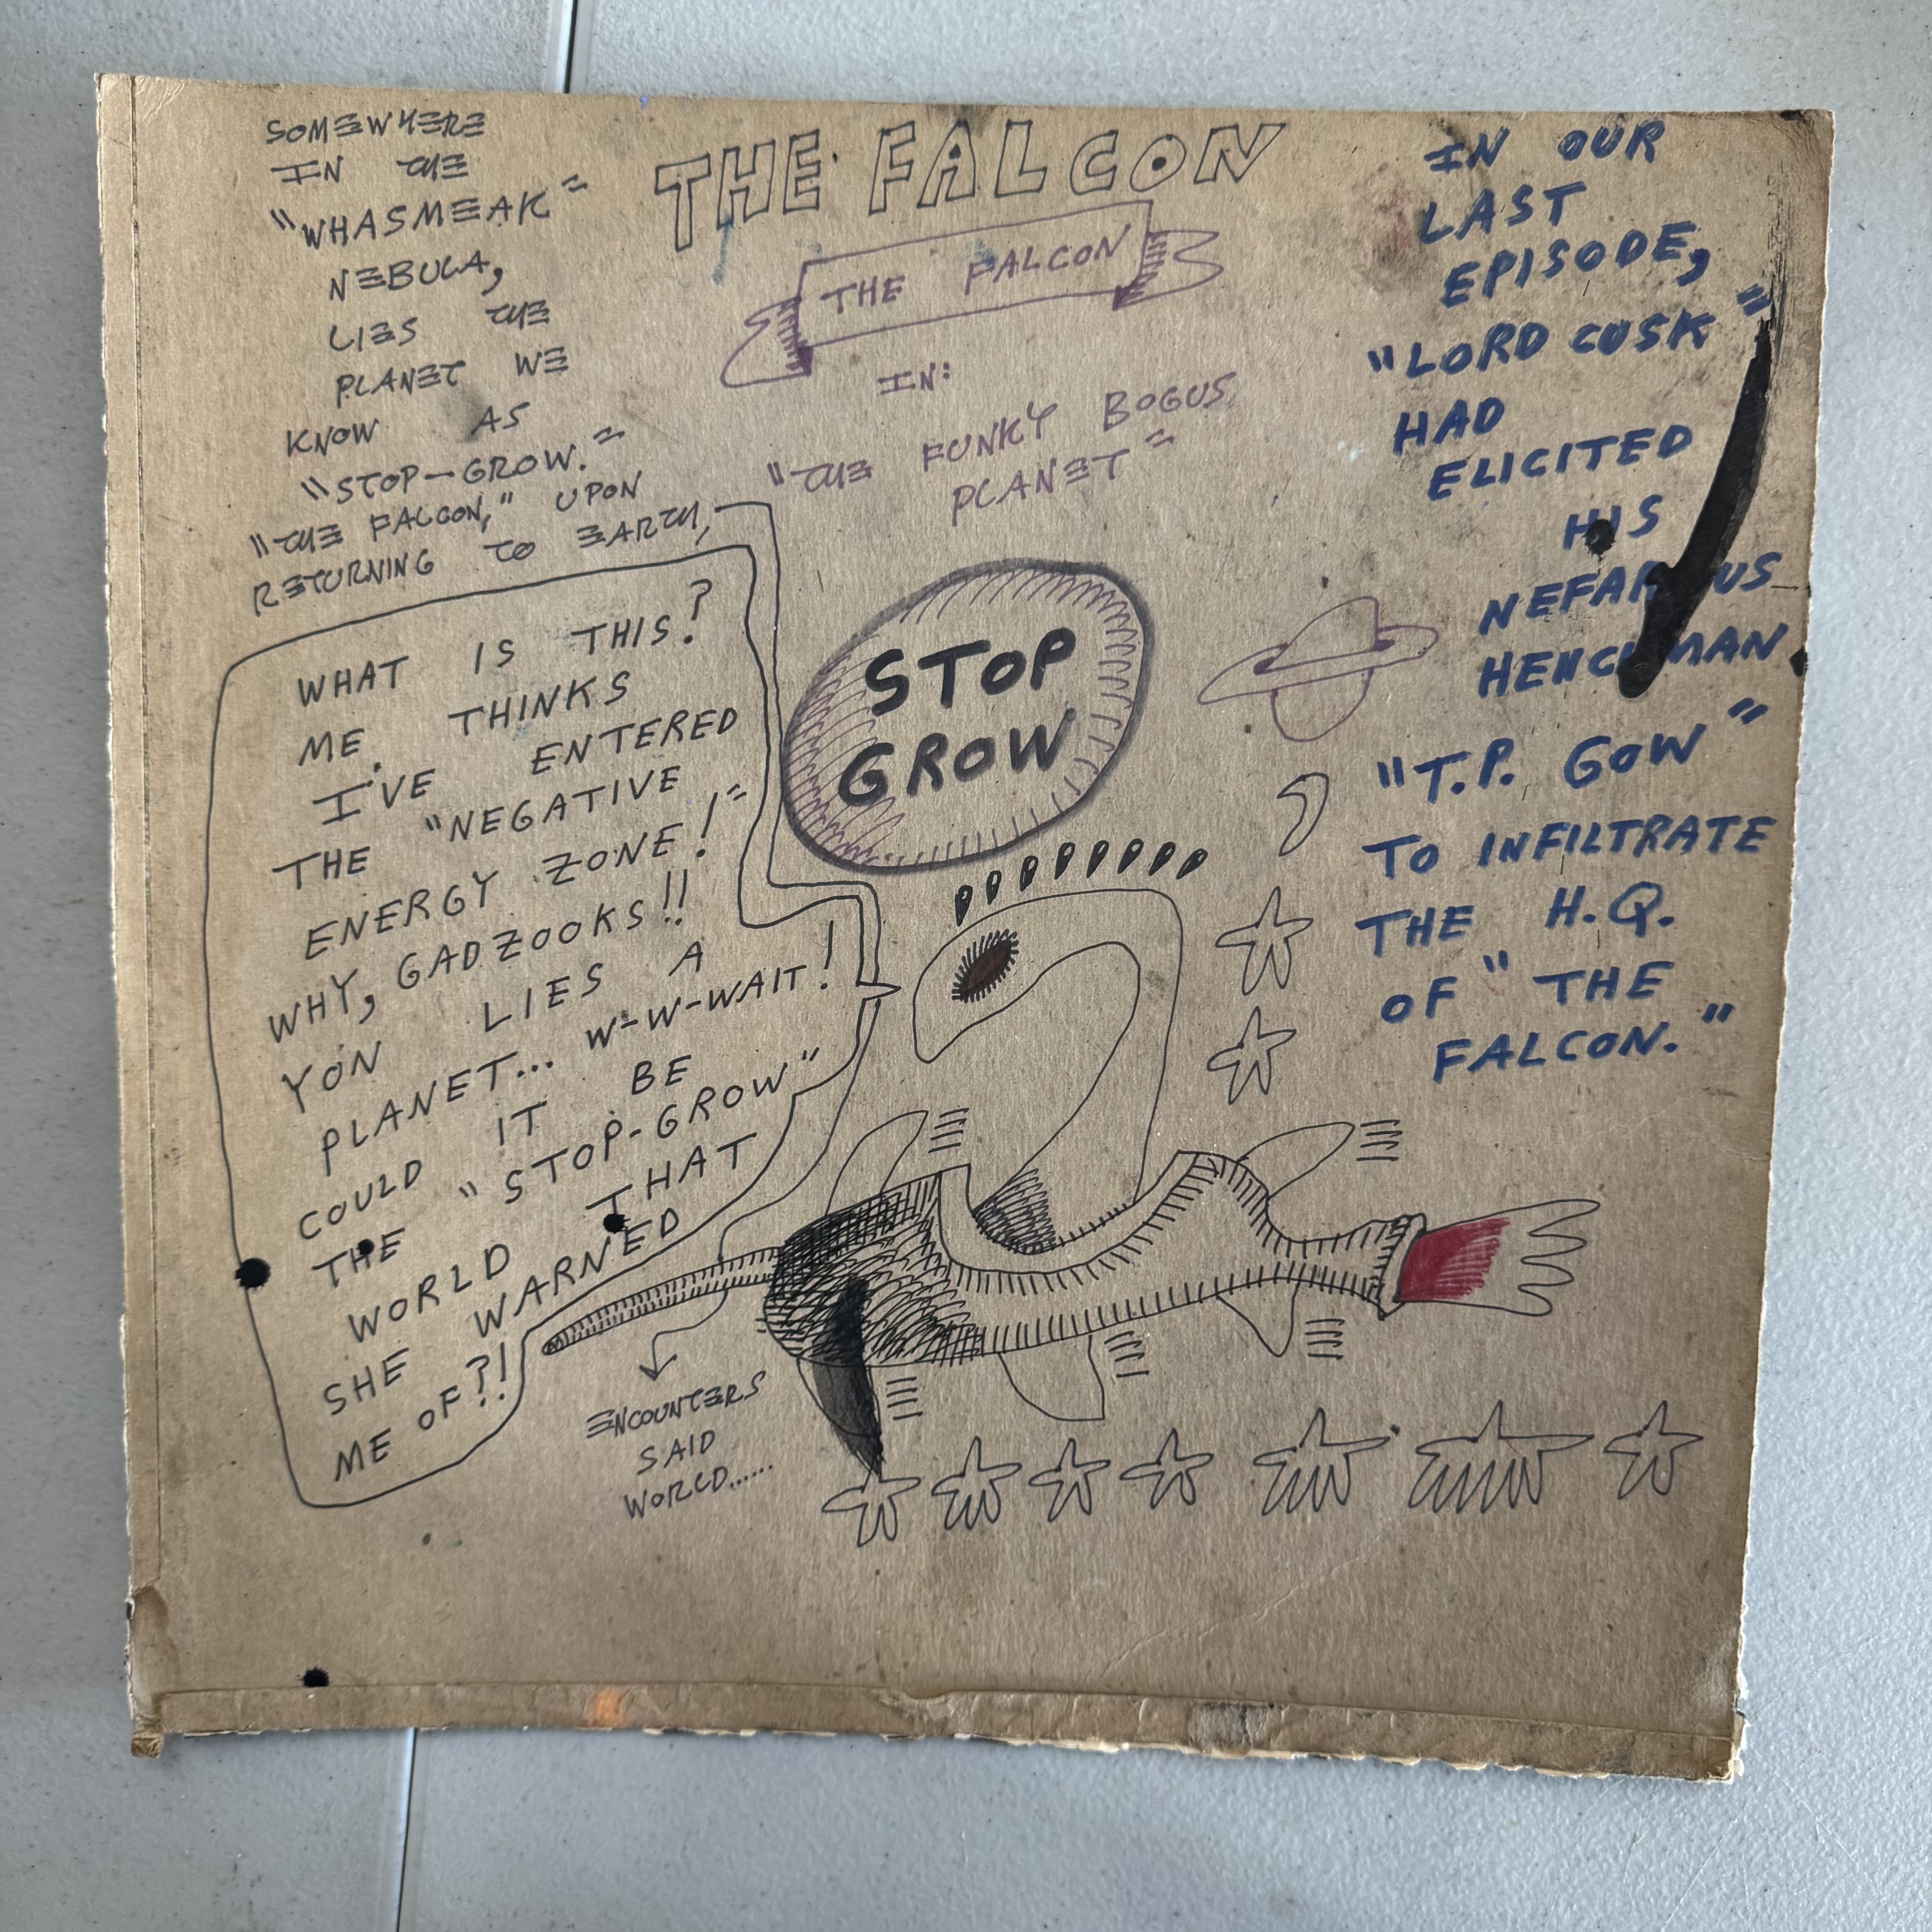 THE FALCON
THE FALCON
IN:
"THE FUNKY BOGUS
PLANET"
SOMEWHERE
IN THE
"WHASMEAK"
NEBULA,
LIES THE
PLANET WE
KNOW AS
"STOP-GROW."
"THE FALCON," UPON
RETURNING TO EARTH,
ENCOUNTERS
SAID
WORLD......
WHAT IS THIS?
ME THINKS
I'VE ENTERED
THE "NEGATIVE
ENERGY ZONE!"
WHY, GADZOOKS!!
YON LIES A
PLANET... W-W-WAIT!
COULD IT BE
THE "STOP-GROW"
WORLD THAT
SHE WARNED
ME OF?!
STOP
GROW
IN OUR
LAST
EPISODE,
"LORD CUSK"
HAD
ELICITED
HIS
NEFARIOUS
HENCHMAN
"T.P. GOW"
TO INFILTRATE
THE H.Q.
OF "THE
FALCON."